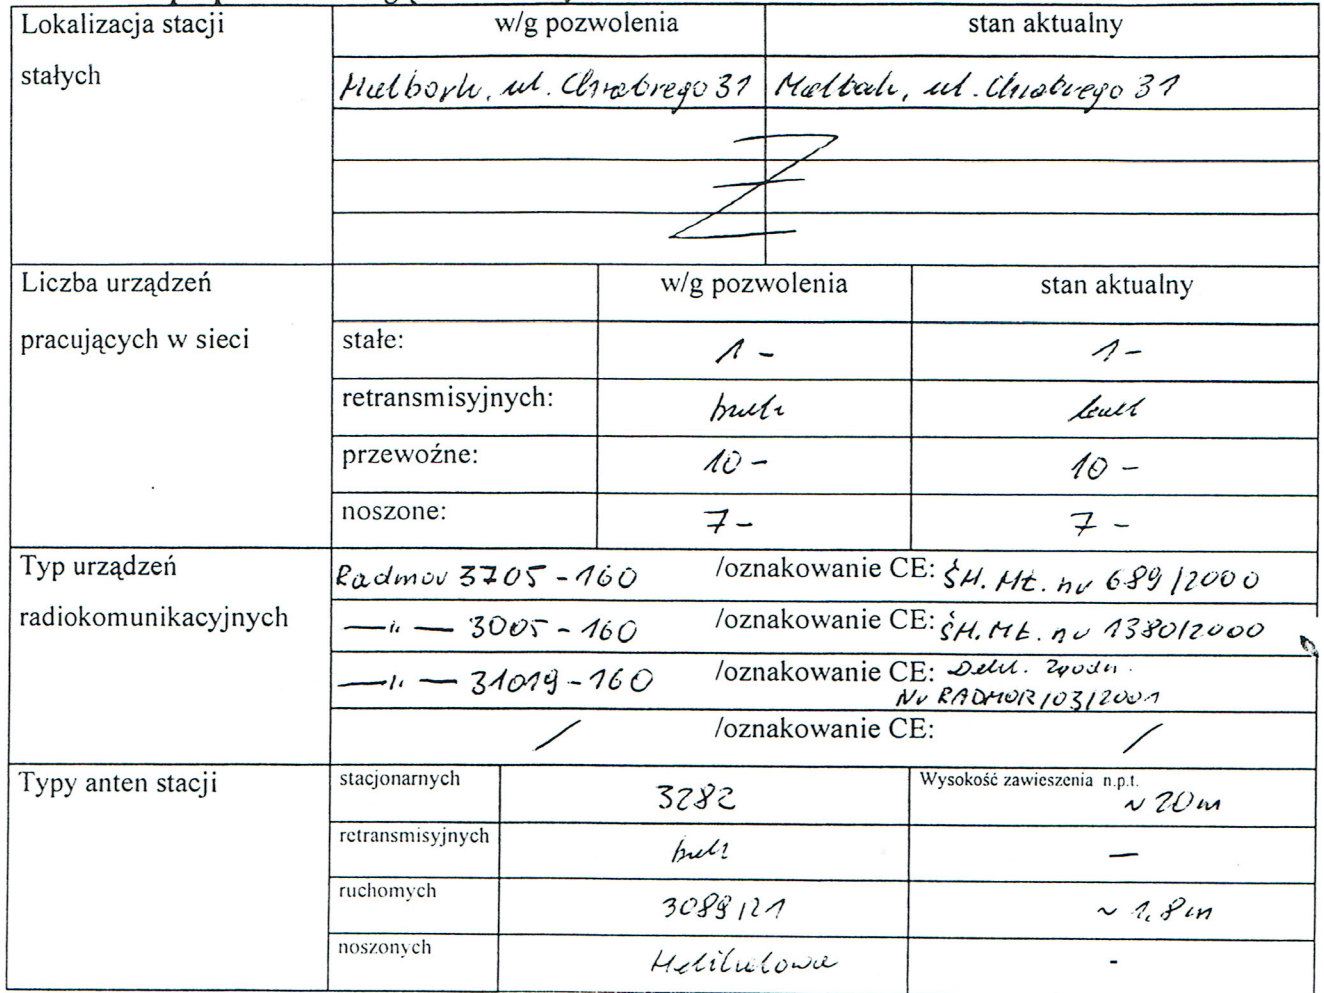 Lokalizacja stacji stałych
w/g pozwolenia
stan aktualny
Malbork, ul. Chrobrego 31
Malbork, ul. Chrobrego 31
Liczba urządzeń pracujących w sieci
w/g pozwolenia
stan aktualny
stałe:
1 -
1 -
retransmisyjnych:
brak
brak
przewoźne:
10 -
10 -
noszone:
7 -
7 -
Typ urządzeń radiokomunikacyjnych
Radmor 3705-160 /oznakowanie CE: ŚH. MŁ. nr 689/2000
—"— 3005-160 /oznakowanie CE: ŚH. MŁ. nr 1380/2000
—"— 31019-160 /oznakowanie CE: Dekl. Zgodn.
Nr RADMOR/03/2001
/ /oznakowanie CE: /
Typy anten stacji
stacjonarnych
3282
Wysokość zawieszenia n.p.t.
~ 20 m
retransmisyjnych
brak
—
ruchomych
3089/21
~ 1,8 m
noszonych
Helikalowa
-